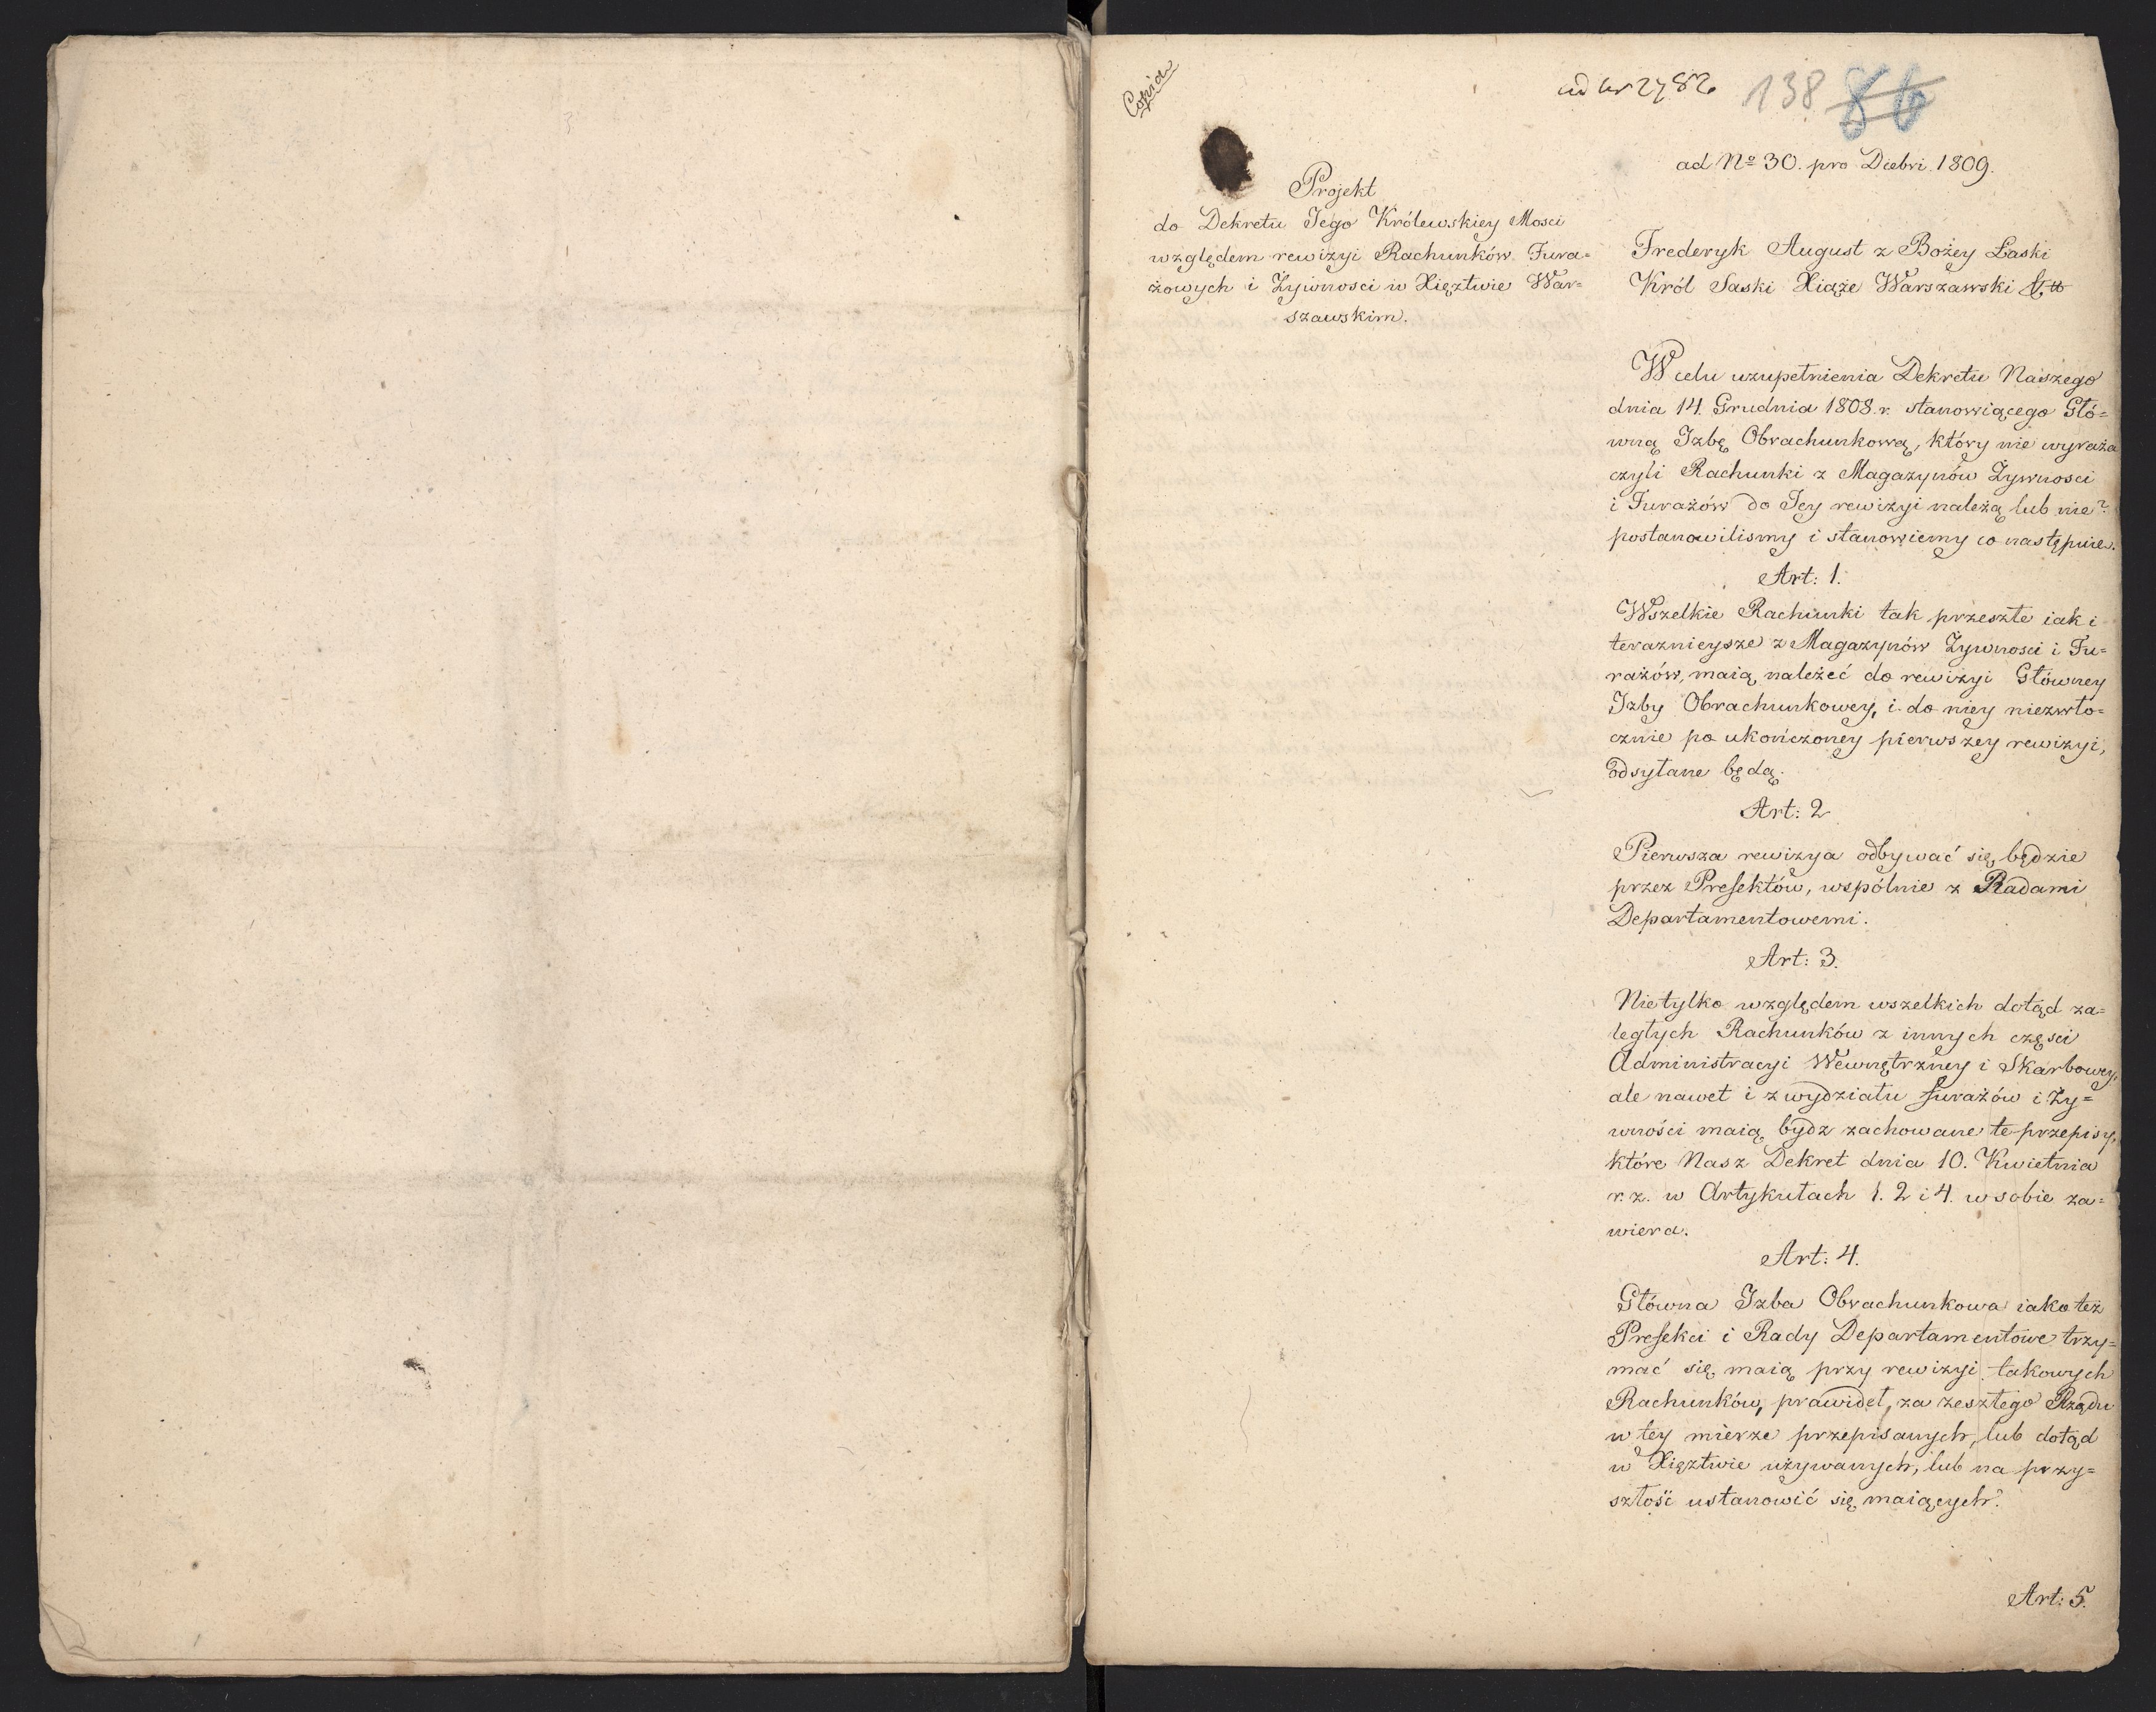 Copia
ad Nr 2782
138
86
ad No 30. pro Diebri 1809.
Projekt
do Dekretu Jego Królewskiey Mosci
względem rewizyi Rachunków Fura=
żowych i Żywnosci w Xięztwie War=
szawskim.
Frederyk August z Bożey Łaski
Król Saski Xiąże Warszawski
W celu uzupełnienia Dekretu Naszego
dnia 14. Grudnia 1808. r. stanowiącego Głó=
wną Izbę Obrachunkową, który nie wyraża
czyli Rachunki z Magazynów Żywnosci
i Furażów do Jey rewizyi należą lub nie?
postanowilismy i stanowiemy co następuie.
Art: 1.
Wszelkie Rachunki tak przeszłe iak i
teraznieysze z Magazynów Żywnosci i Fu=
rażów, maią należeć do rewizyi Główney
Izby Obrachunkowey, i do niey niezwło=
cznie po ukończoney pierwszey rewizyi,
odsyłane będą.
Art: 2
Pierwsza rewizya odbywać się będzie
przez Prefektów, wspólnie z Radami
Departamentowemi.
Art: 3.
Nietylko względem wszelkich dotąd za=
ległych Rachunków z innych częsci
Administracyi Wewnętrzney i Skarbowey,
ale nawet i z wydziału furażów i Ży=
wności maią bydz zachowane te przepisy,
które Nasz Dekret dnia 10. Kwietnia
r. z. w Artykułach 1. 2 i 4. w sobie za=
wiera.
Art: 4.
Główna Izba Obrachunkowa iako też
Prefekci i Rady Departamentowe trzy=
mać się maią przy rewizyi takowych
Rachunków, prawideł, za zeszłego Rządu
w tey mierze przepisanych, lub dotąd
w Xięztwie używanych, lub na przy=
szłość ustanowić się maiących.
Art: 5.